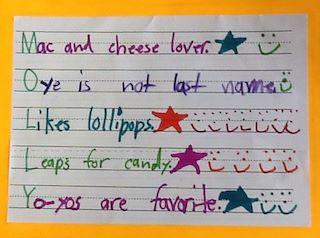 Mac and cheese lover.
Oye is not last name.
Likes lollipops.
Leaps for candy.
Yo-yos are favorite.